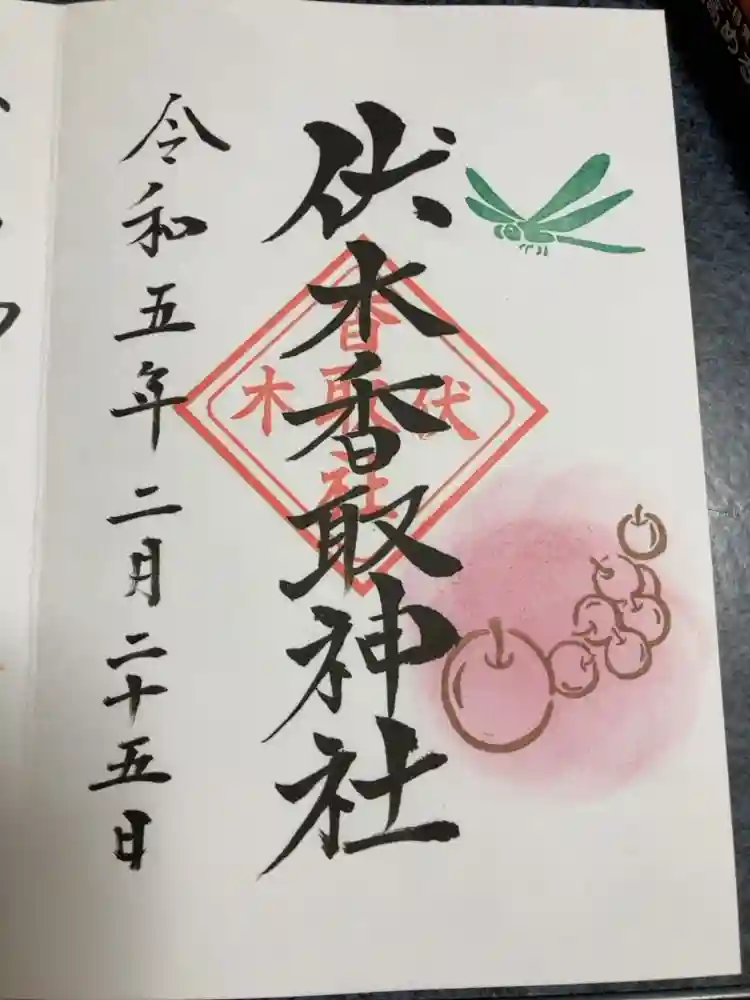 伏木香取神社
伏木
香取社
令和五年二月二十五日